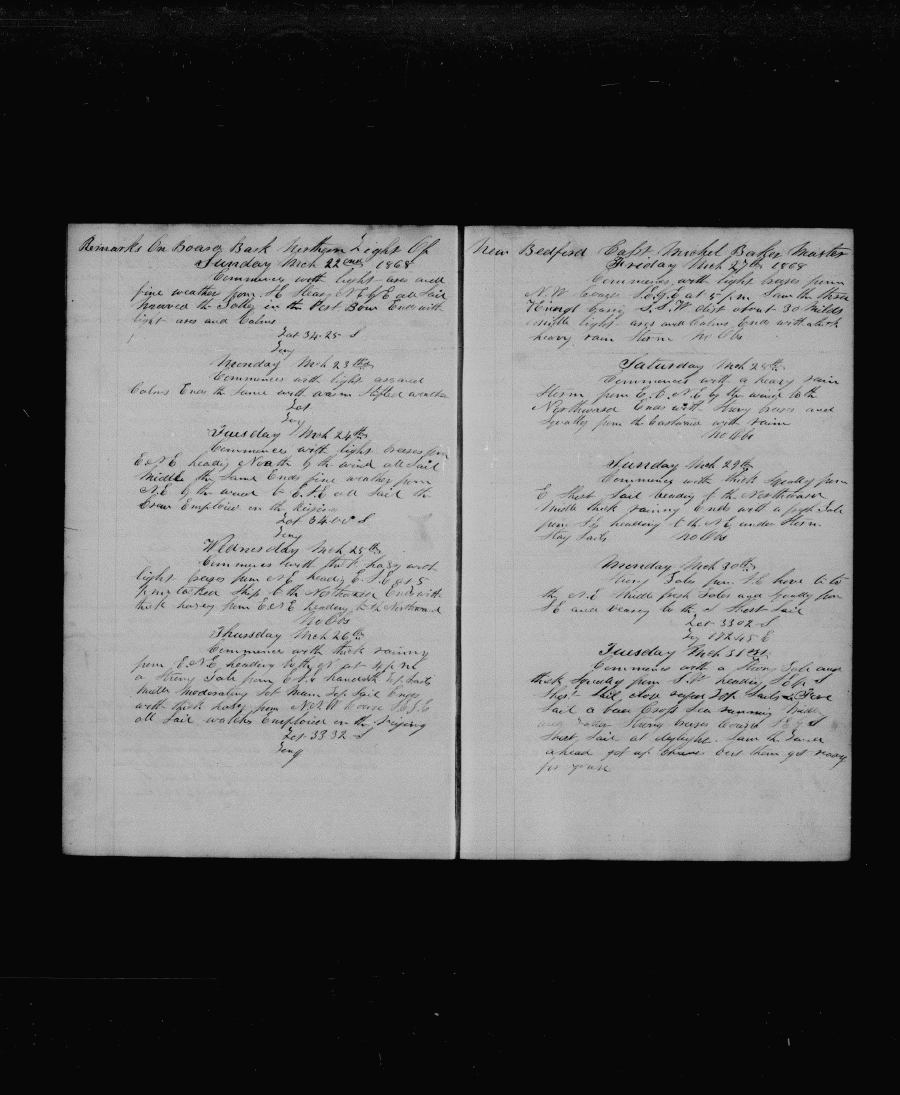 Remarks On Board Bark Northern Light Of
Sunday Mch 22nd 1868
Commences with light airs and
fine weather from SE Stearg NE by E all Sail
in the Port Bow Ends with
light airs and Calms
Lat 34 25 S
Long
Monday Mch 23th
Commences with light airs and
Calms Ends the Same with warm weather
Lat
Long
Tuesday Mch 24th
Commences with light breeses from
ENE heading North by the wind all Sail
Middle the Same Ends fine weather from
NE by the wind to ESE all Sail the
Crew Employed in the Riging
Lat 34 00 S
Long
Wednesday Mch 25th
Commences with thick hazy with
light breeses from NE heading ESE at 5
PM tacked Ship to the Northward Ends with
thick hazy from ENE heading to the Northward
No Obs
Thursday Mch 26th
Commences with thick rainy
from ENE heading to the N at 4 PM
a Strong Gale from
Middle Moderating Set Main Top Sail Ends
with thick hazy from NNW Course
all Sail watch Employed in the Riging
Lat 33 32 S
Long
New Bedford Capt Baker Master
Friday Mch 27th 1868
Commences with light breeses from
NW Course at 5 PM Saw the three
Kings bearing SSW dist about 30 Miles
Middle light airs and Calms Ends with
heavy rain Storm No Obs
Saturday Mch 28th
Commences with a heavy rain
Storm from by the wind to the
Northward Ends with Strong breeses and
Squally from the Eastward with rain
No Obs
Sunday Mch 29th
Commences with thick Squaly from
E Short Sail heading to the Northward
Middle thick rainy Ends with a fresh Gale
from heading to the NE under Storm
Stay Sails No Obs
Monday Mch 30th
Strong Gales from SE hove to to
the NE Middle fresh Gales and Squally from
SE and veering to the S Short Sail
Lat 33 02 S
Log 172 45 E
Tuesday Mch 31st
Commences with a Strong Gale and
thick Squaly from SW heading
Short Sail close reefed Top Sails & Fore
Sail a bad Cross Sea running Middle
and latter Strong breeses Course
Short Sail at daylight Saw the land
ahead got up chains bent them got ready
for